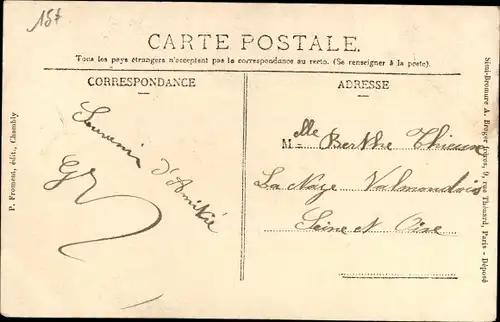 157
CARTE POSTALE.
Tous les pays étrangers n'acceptent pas la correspondance au recto. (Se renseigner à la poste).
CORRESPONDANCE
ADRESSE
Souvenir
d'Amitié
M elle Berthe Thieux
La Naze Valmondois
Seine et Oise
P. Froment, édit., Chambly
Simi-Bromure A. Breger frères, 9, rue Thénard, Paris - Déposé